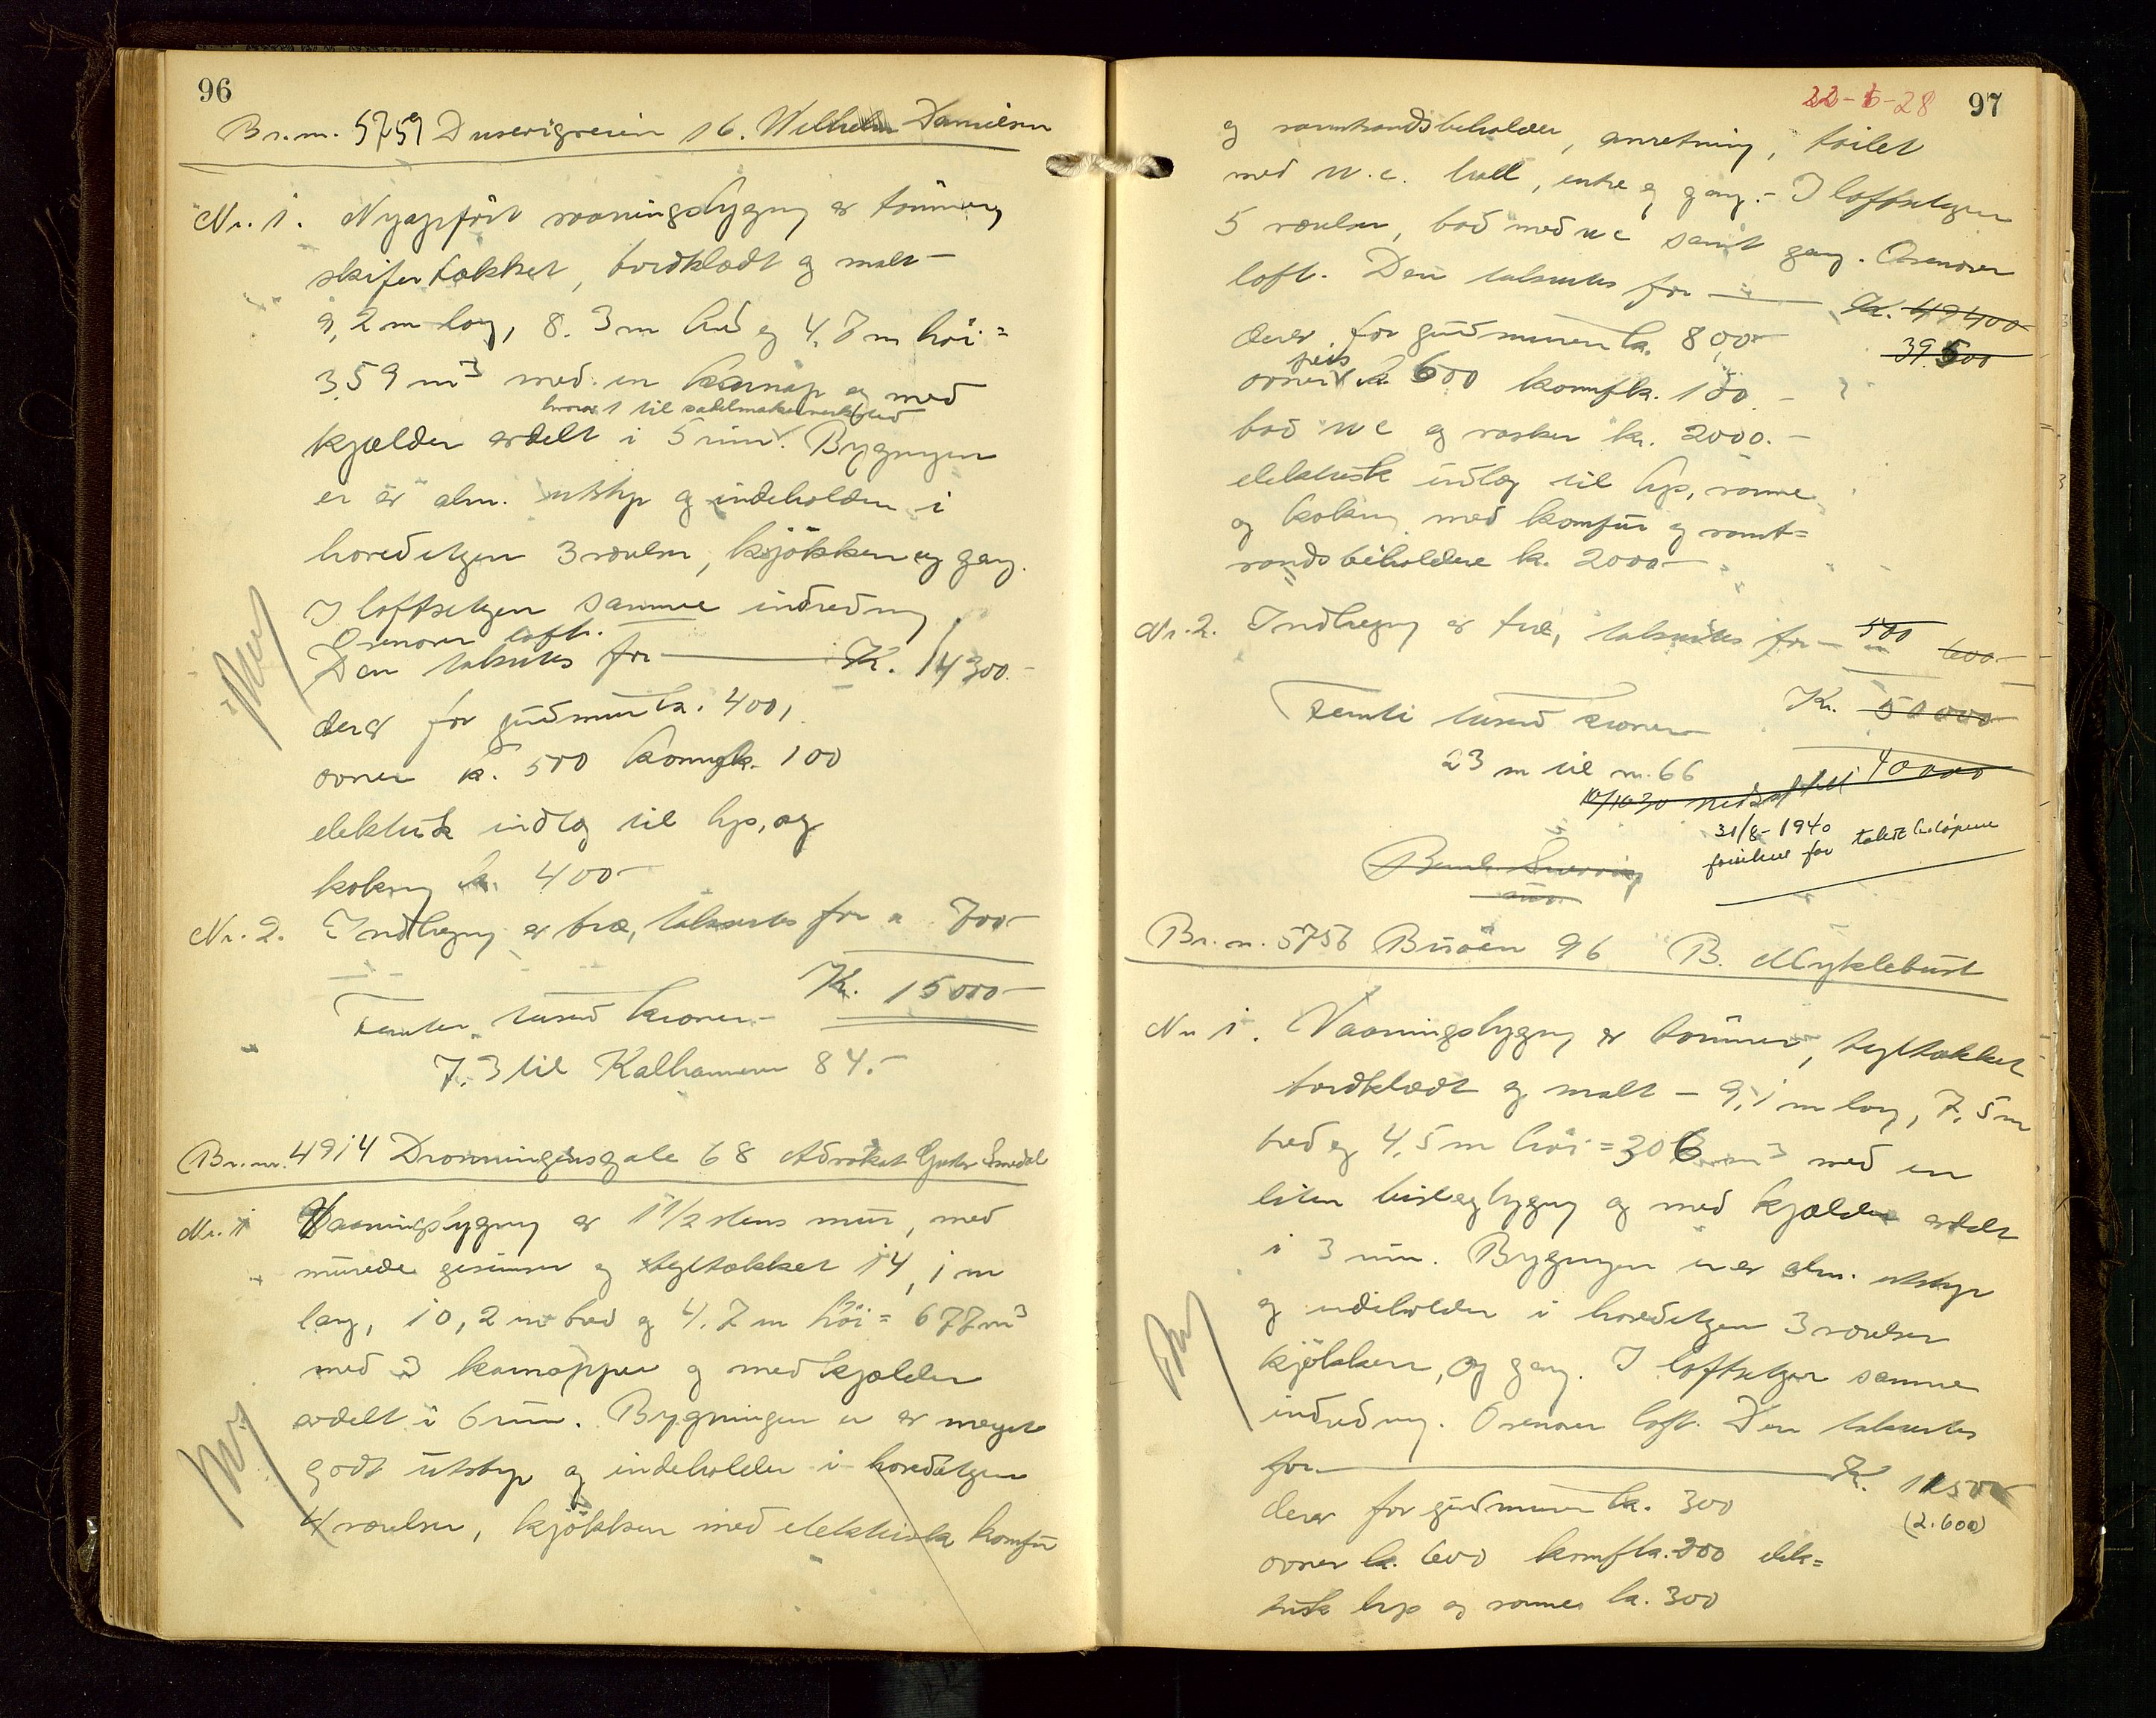 96
Br.nr. 5759 Dusevigveien 16. Wilhelm Danielsen
Nr. 1. Nyopført vaaningsbygng er tømmer,
skifertækket, bordklædt og malt -
9,2 m lang, 8.3 m bred og 4.7 m høi =
359 m³ med en karnap og med
hvorav 1 til sadelmakerverksted
kjælder avdelt i 5 rum. Bygngen
er av alm. utstyr og indeholder i
hovedetgen 3 værelser, kjøkken og gang.
I loftsetgen samme indredng
Ovenover loft.
Den taksertes for — Kr. 14300.-
derav for grundmur kr. 400,
ovner kr. 500 komf. kr. 100
elektrisk indlæg til lys, og
kokng kr. 400-
Nr. 2. Indhegng av træ, taksertes for " 700-
Kr. 15000-
Femten tusend kroner-
7.3 til Kalhammeren 84.-
Br.nr. 4914 Dronningensgate 68 Advokat Gustav Smedal
Nr. 1 Vaaningsbygng av 1 1/2 stens mur, med
murede gesimser og tegltækket 14,1 m
lang, 10,2 m bred og 4.7 m høi = 677 m³
med 3 karnapper og med kjælder
avdelt i 6 rum. Bygningen er av meget
godt utstyr og indeholder i hovedetgen
4 værelser, kjøkken med elektrisk komfur
22-5-28 97
og varmtvandsbeholder, anretning, toilet
med w.c. hall, entre og gang.- I loftsetgen
5 værelser, bad med wc samt gang. Ovenover
loft. Den taksertes for — Kr. 49400
39500
derav for grundmuren kr. 800-
peis
ovner kr. 600 komf kr. 100.-
bad wc og vasker kr. 2000.-
elektrisk indlæg til lys, varme
og kokng med komfur og varmt=
vandsbeholdere kr. 2000-
Nr. 2. Indhegng av træ, taksertes for - 500 600-
Femti tusend kroner Kr. 50000-
40000
23 m til nr. 66
10/10 30 nedsat til
31/8-1940 takstbeløpene
forikres for
Br.nr. 5756 Buøen 96 B. Myklebust
Nr 1. Vaaningsbygng av tømmer, tegltækket
bordklædt og malt - 9,1 m lang, 7,5 m
bred og 4,5 m høi = 306 m³ med en
liten bislagbygng og med kjælder avdelt
i 3 rum. Bygngen er av alm. utstyr
og indeholder i hovedetgen 3 værelser
kjøkken, og gang. I loftsetgen samme
indredng. Ovenover loft. Den taksertes
for — Kr. 11500
(2.600)
derav for grundmuren kr. 300
ovner kr. 600 komf kr. 200 elek=
trisk lys og varme kr. 300